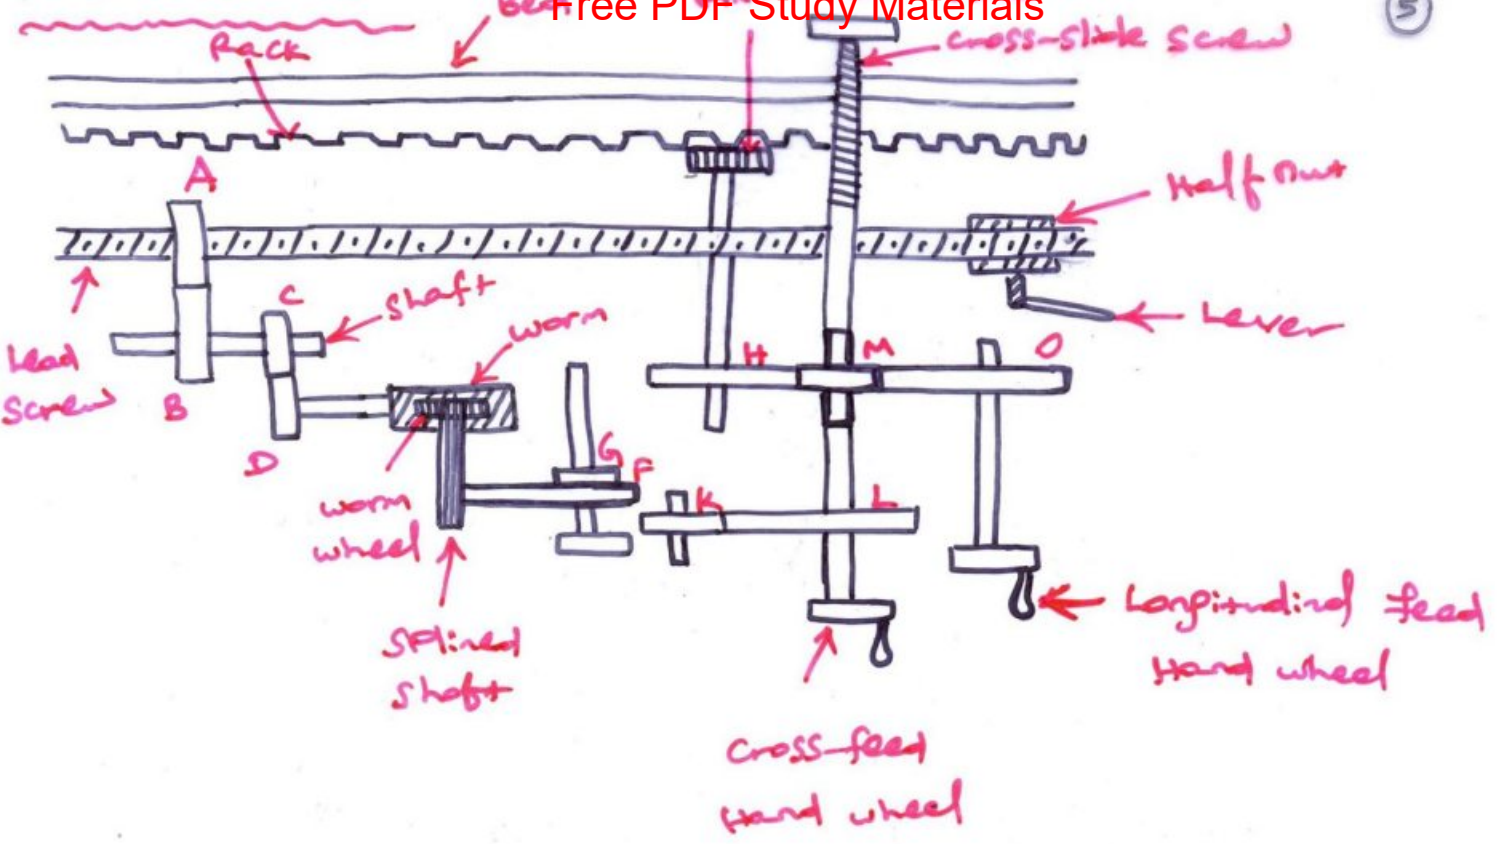 Free PDF Study Materials
5
Rack
cross-slide screw
A
Half nut
C
shaft
worm
Lever
Lead
screw
B
H
M
O
D
G
F
K
L
worm
wheel
splined
shaft
Longitudinal feed
Hand wheel
cross-feed
Hand wheel